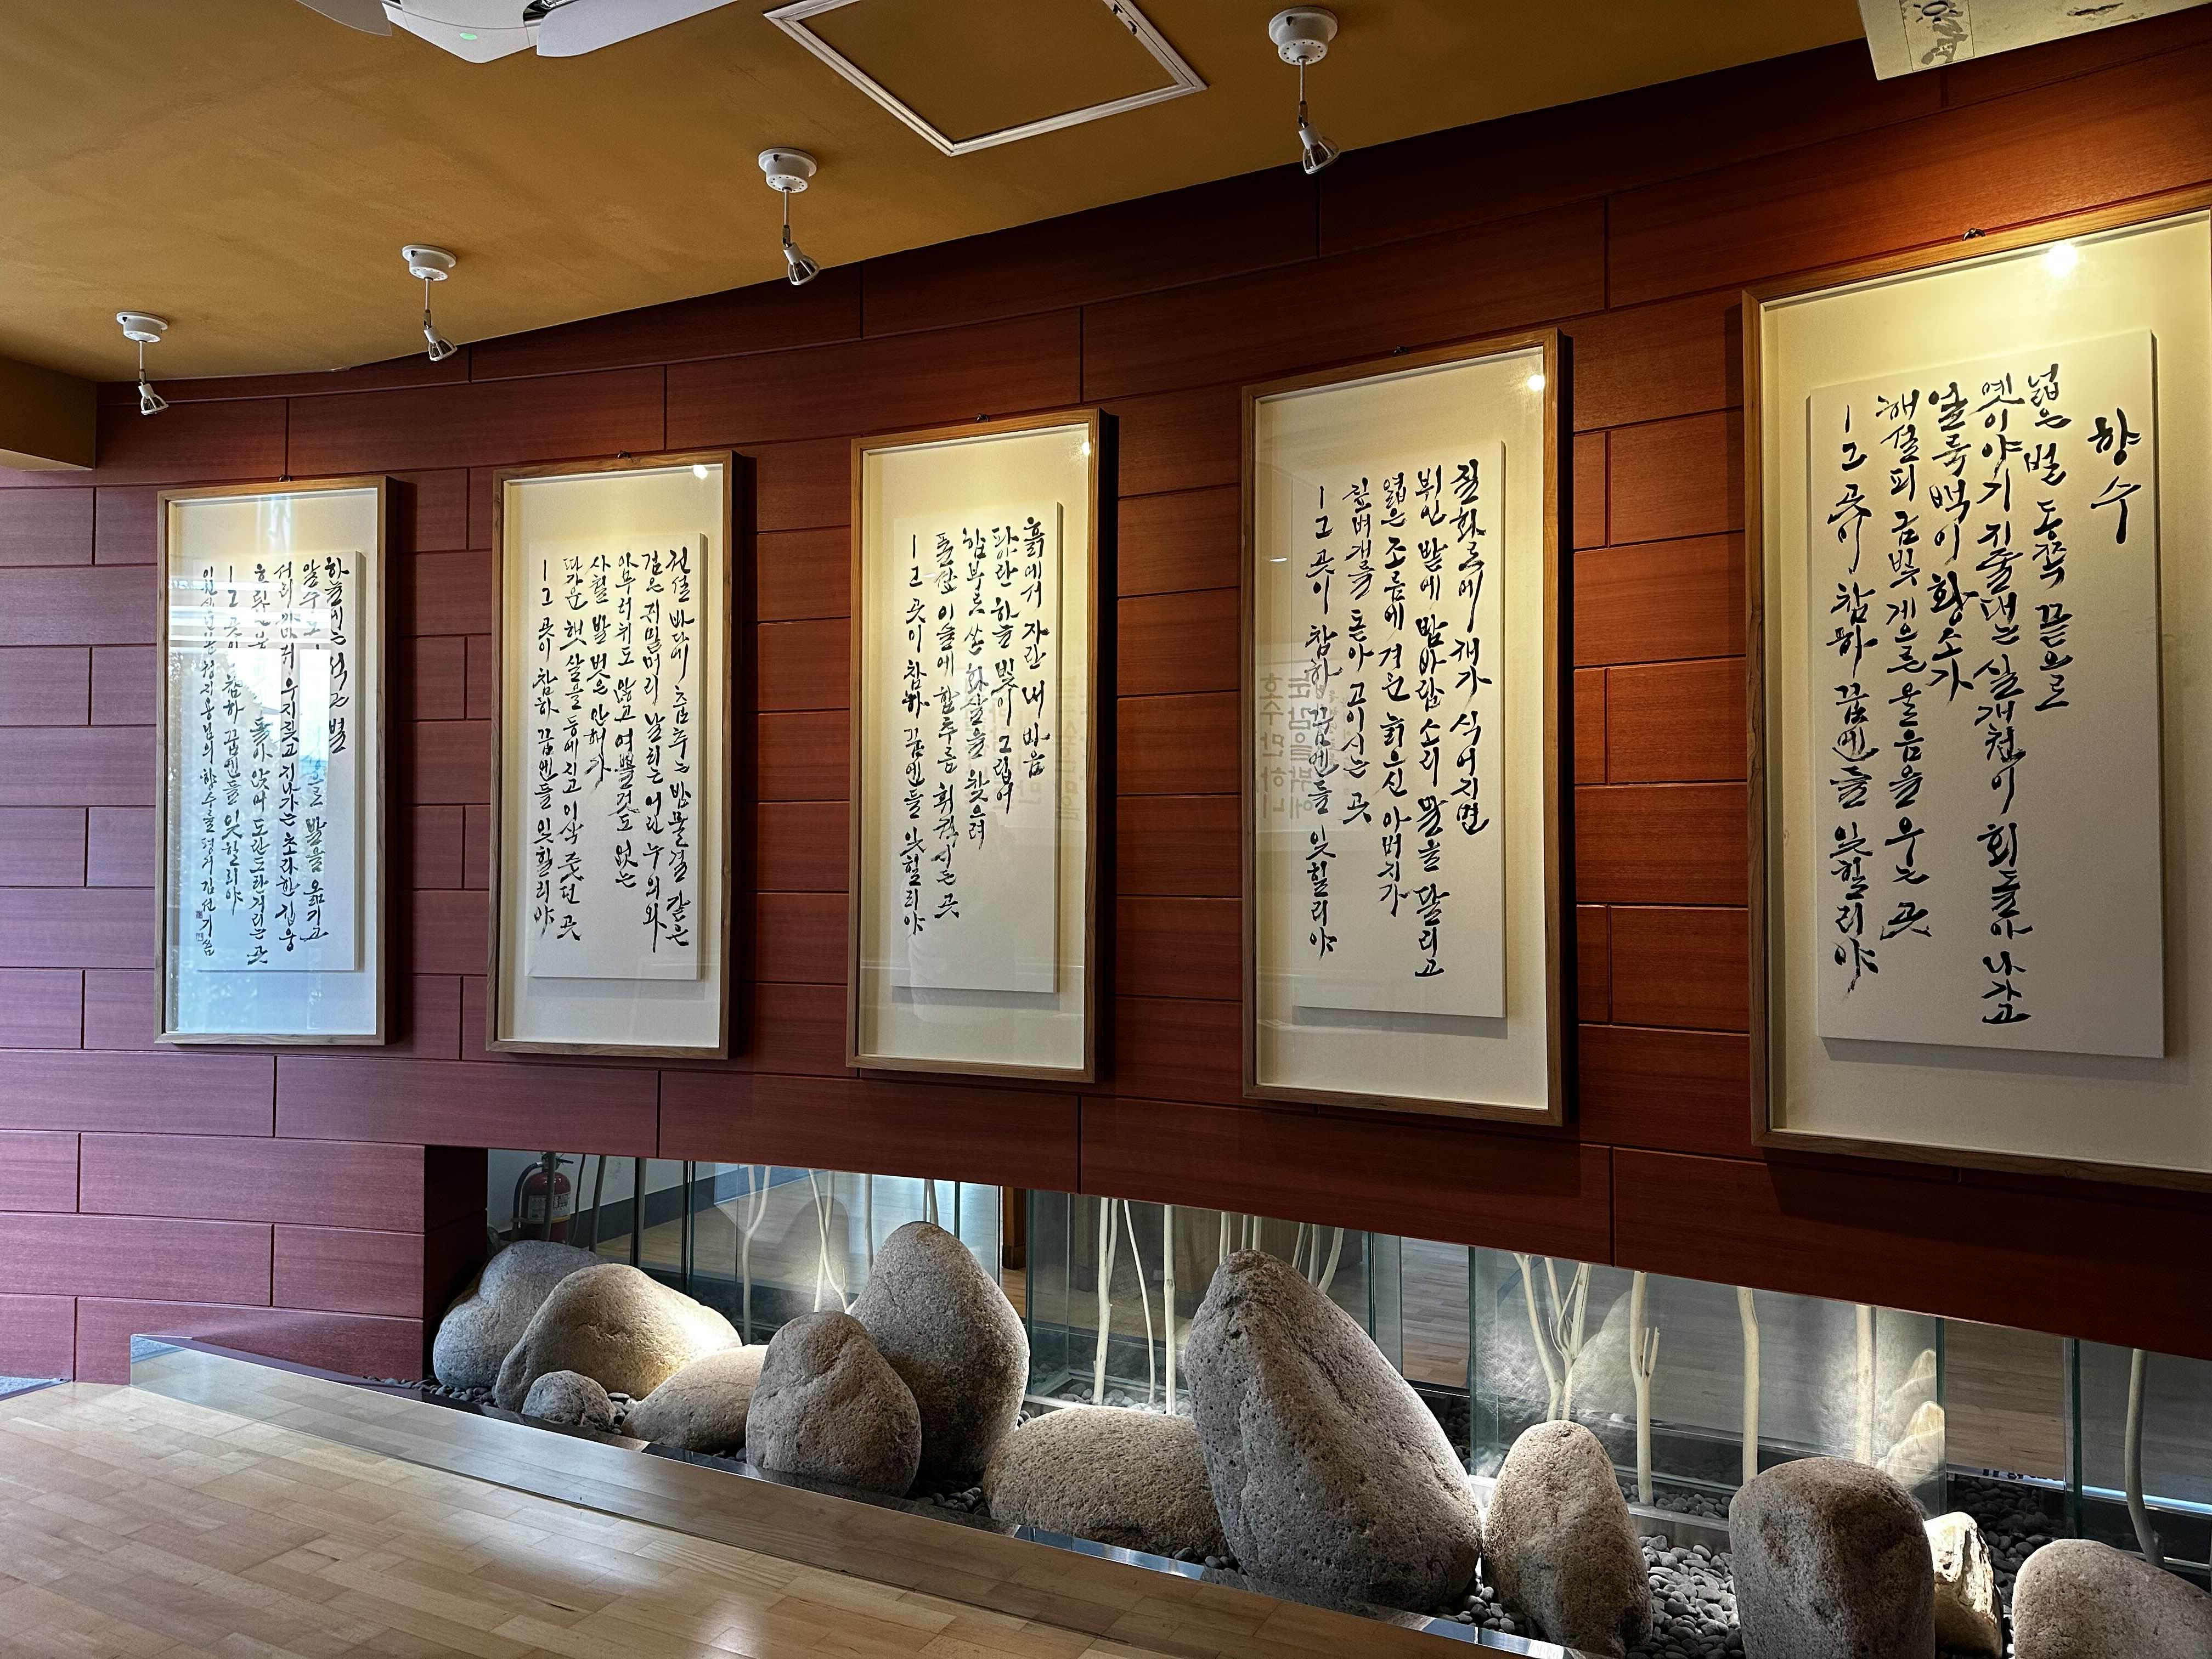 향수
넓은 벌 동쪽 끝으로
옛이야기 지줄대는 실개천이 회돌아 나가고
얼룩백이 황소가
해설피 금빛 게으른 울음을 우는 곳
ㅣ그 곳이 참하 꿈엔들 잊힐리야
질화로에 재가 식어지면
뷔인 밭에 밤바람 소리 말을 달리고
엷은 조름에 겨운 늙으신 아버지가
짚벼개를 돋아 고이시는 곳
ㅣ그 곳이 참하 꿈엔들 잊힐리야
흙에서 자란 내 마음
파아란 하늘 빛이 그립어
함부로 쏜 화살을 찾으려
풀섶 이슬에 함추름 휘적시는 곳
ㅣ그 곳이 참하 꿈엔들 잊힐리야
전설 바다에 춤추는 밤물결 같은
검은 귀밑머리 날리는 어린 누의와
아무러치도 않고 여쁠것도 없는
사철 발 벗은 안해가
따가운 햇살을 등에 지고 이삭 줏던 곳
ㅣ그 곳이 참하 꿈엔들 잊힐리야
하늘에는 석근 별
알수도 발을 옮기고
서리 까마귀 우지짖고 지나가는 초라한 집웅
흐릿한 돌아 앉어 도란도란거리는 곳
ㅣ그 곳이 참하 꿈엔들 잊힐리야
정지용님의 향수를 평거 김선기 씀